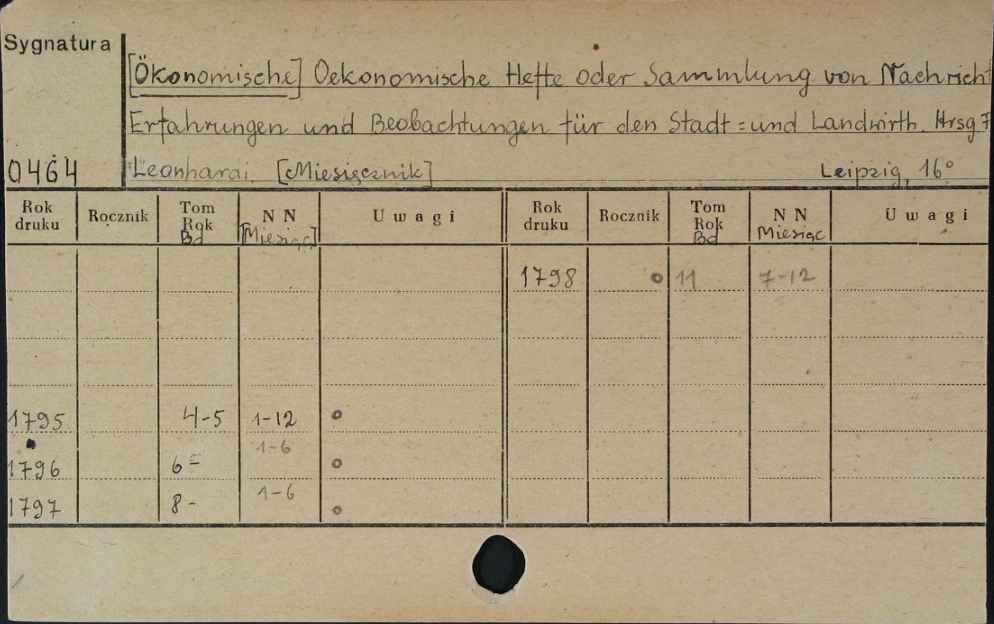 Sygnatura
[Ökonomische] Oekonomische Hefte oder Sammlung von Nachrich
Erfahrungen und Beobachtungen für den Stadt=und Landwirth. Hrsg F
0464
Leonhardi. [Miesięcznik] Leipzig, 16°
Rok druku Rocznik Tom Rok Bd NN [Miesiąc] Uwagi Rok druku Rocznik Tom Rok Bd NN Miesiąc Uwagi
1798 o 11 7-12
1795 4-5 1-12 o
1-6
1796 6- o
1-6
1797 8- o